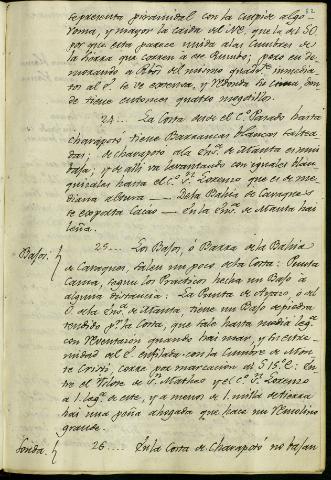 52
representa piramidal con la cuspide algo
roma, y mayor la caida del NE. que la del SO.
por que esta parece unida a las cumbres de
la tierra que corren a ese Rumbo; pero en de-
morando a Obos del mismo quadr.te inmedia-
tos al S. se ve extensa, y redonda su cima, don-
de tiene entonces quatro mogotillos.
24... La Costa desde el C.o Pasado hasta
charapotó tiene Barrancas blancas saltea-
das; de charapotó a la Ens.a de Manta es mui
baja; y de alli va levantando con iguales Blan-
quizales hasta el C.o Sn. Lorenzo que es de me-
diana altura — De la Bahia de Caraques
se exporta Cacao — En la Ens.a de Manta hai
leña.
Bajos.
25... Los Bajos, ó Barra de la Bahia
de Caraques, salen un poco de la Costa: Punta
Canoa, segun los Practicos hecha un Bajo à
alguna distancia: La Punta de
O. de la Ens.a de Manta, tiene un Bajo de piedra
tendido pr. la Costa, que sale hasta media leg.a
con Reventazon quando hai mar, y su extre-
midad del O. enfilada con la Cumbre de Mon-
te Cristi, corre por marcacion al S 15° E: En-
tre el Islote de Sn. Matheo y el C.o Sn. Lorenzo
a 1. leg.a de este, y a menos de 1. milla de tierra
hai una peña ahogada que hace un Remolino
grande.
Sonda.
26... En la Costa de Charapotó no bajan